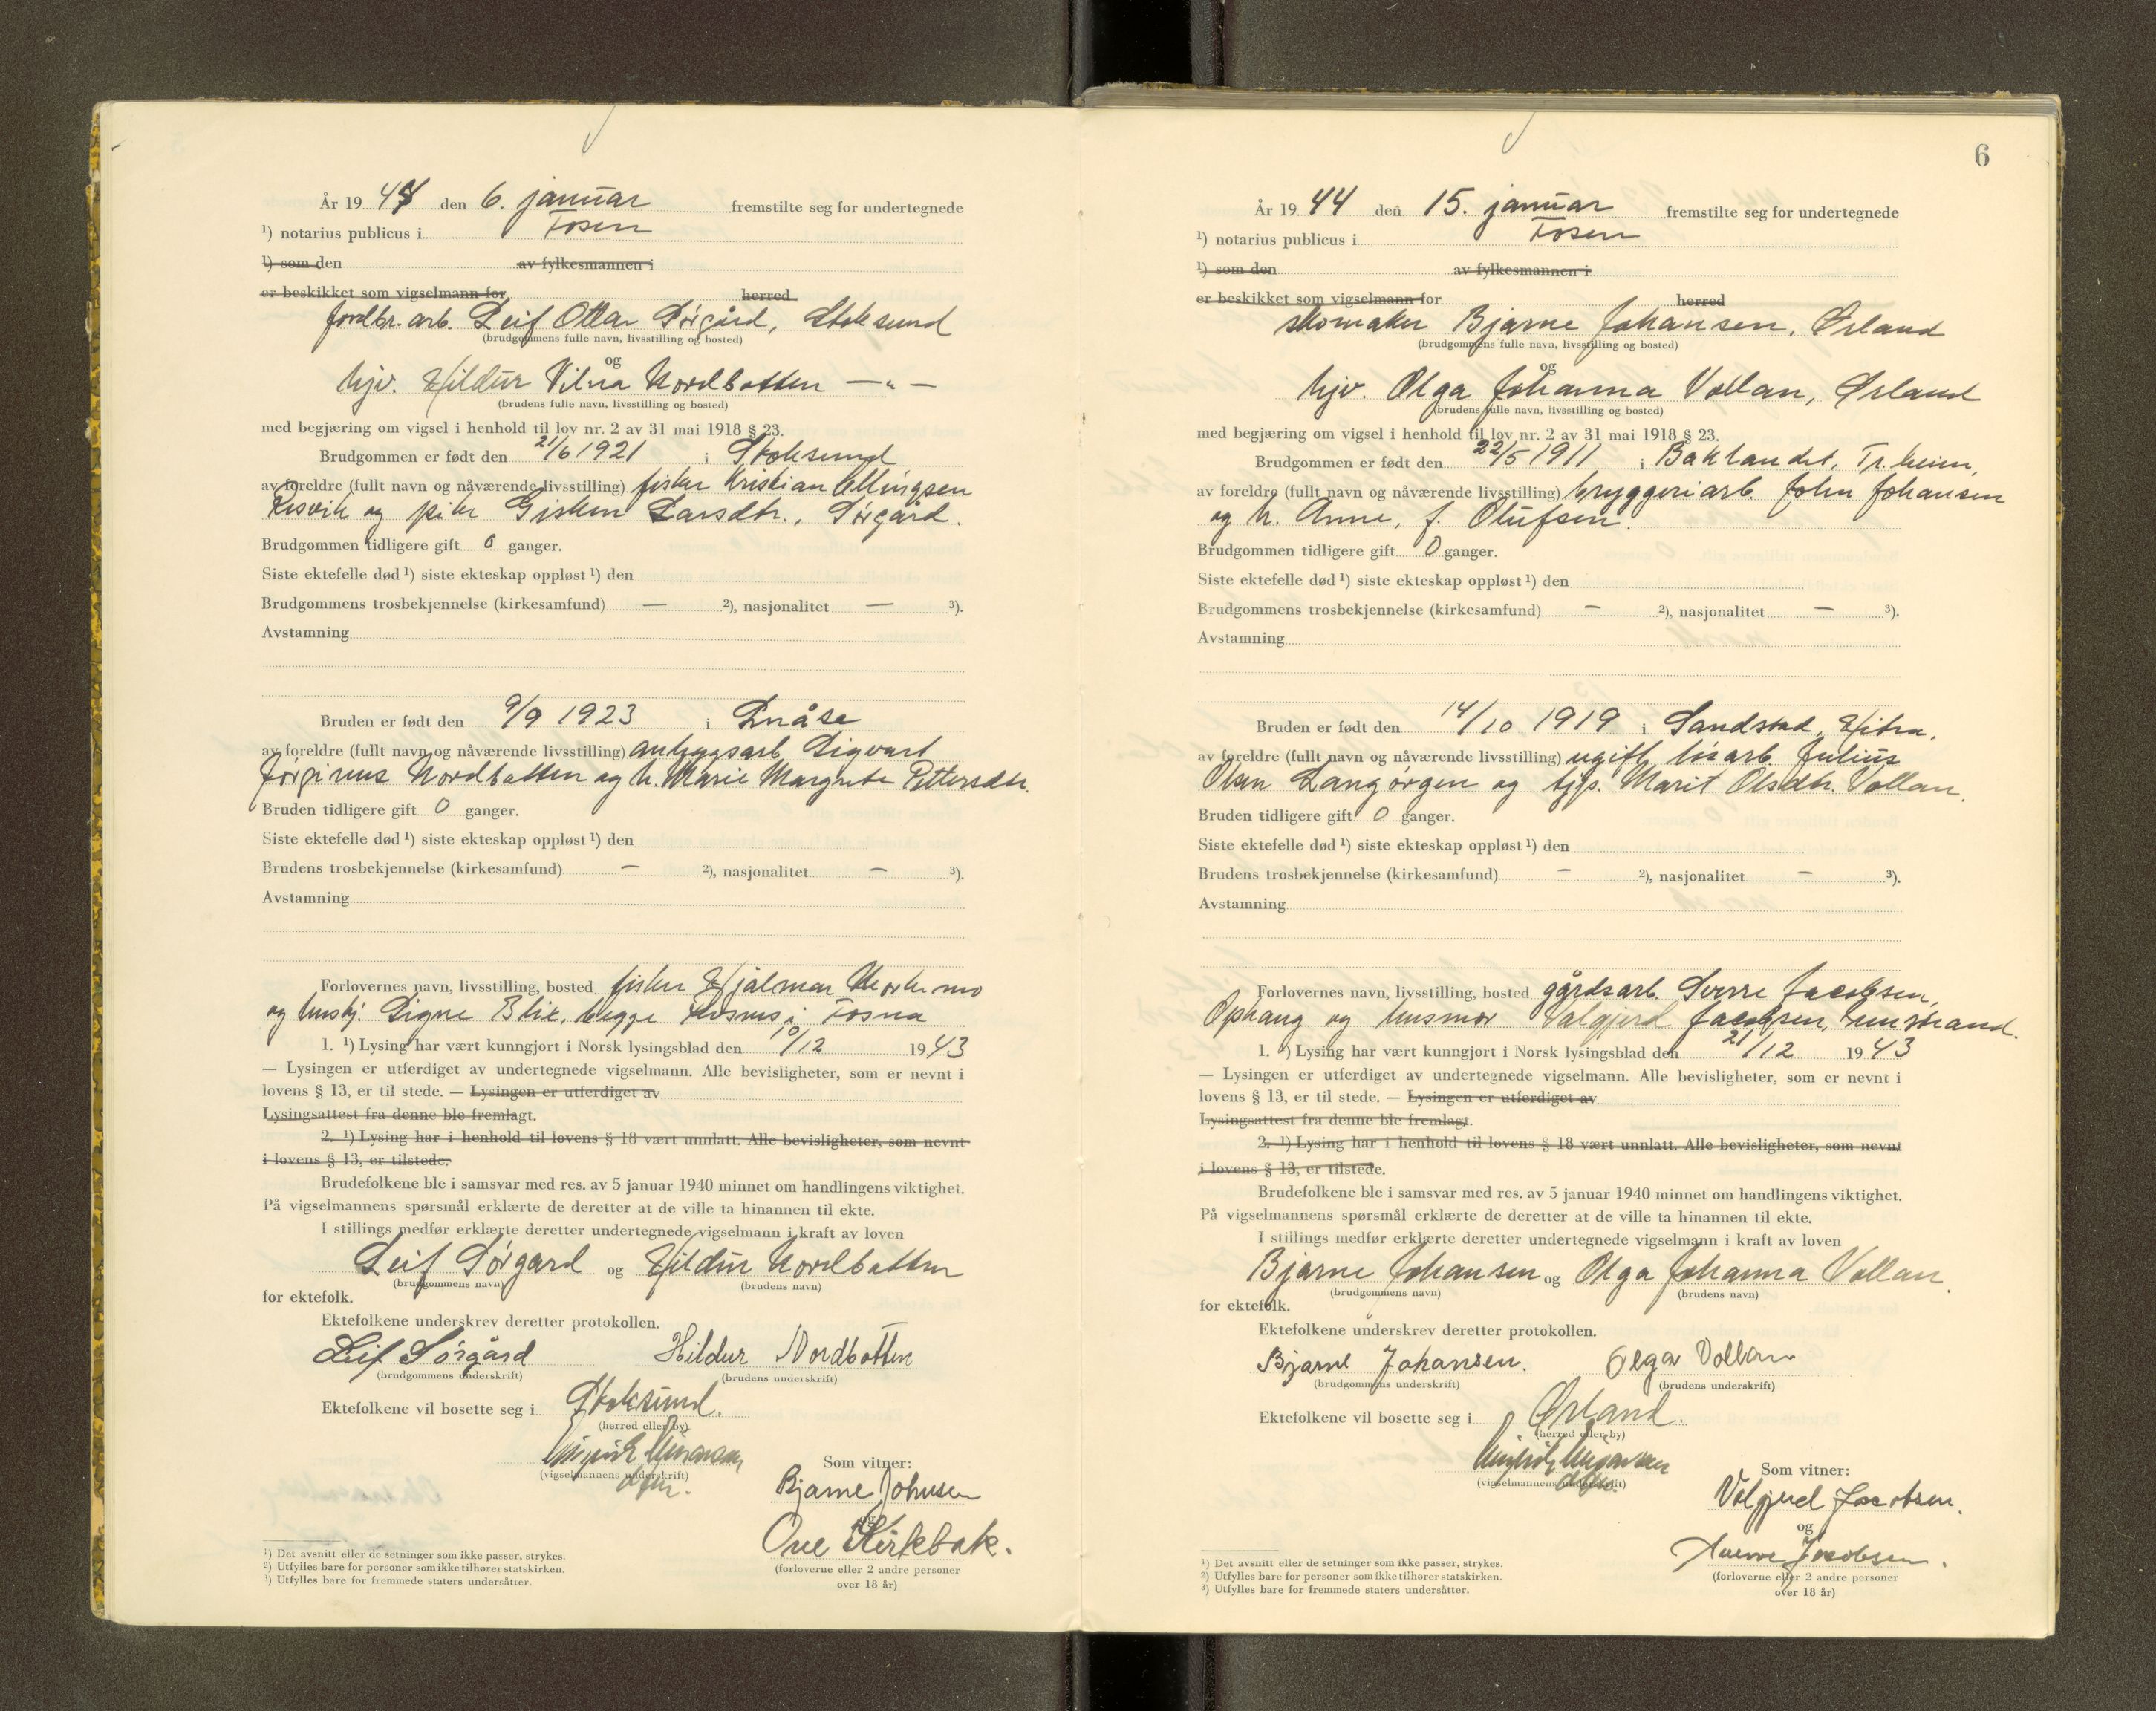 År 19 44 den 6. januar fremstilte seg for undertegnede
¹) notarius publicus i Fosen
¹) som den av fylkesmannen i
er beskikket som vigselmann for herred
jordbr. arb. Leif Ottar Sørgård, Stoksund
(brudgommens fulle navn, livsstilling og bosted)
og
hjv. Hildur Vilna Nordbotten — " —
(brudens fulle navn, livsstilling og bosted)
med begjæring om vigsel i henhold til lov nr. 2 av 31 mai 1918 § 23.
Brudgommen er født den 21/6 1921 i Stoksund
av foreldre (fullt navn og nåværende livsstilling) fisker Kristian Ellingsen
Resvik og pike Gisken Larsdtr., Sørgård.
Brudgommen tidligere gift 0 ganger.
Siste ektefelle død ¹) siste ekteskap oppløst ¹) den
Brudgommens trosbekjennelse (kirkesamfund) — ²), nasjonalitet — ³).
Avstamning
Bruden er født den 9/9 1923 i Snåsa
av foreldre (fullt navn og nåværende livsstilling) anleggsarb. Sigvart
Jørginus Nordbotten og h. Marie Margrete Pettersdtr.
Bruden tidligere gift 0 ganger.
Siste ektefelle død ¹) siste ekteskap oppløst ¹) den
Brudens trosbekjennelse (kirkesamfund) — ²), nasjonalitet — ³).
Avstamning
Forlovernes navn, livsstilling, bosted fisker Hjalmar
og husbj. Signe Blix, begge i Fosna
1. ¹) Lysing har vært kunngjort i Norsk lysingsblad den 10/12 1943
— Lysingen er utferdiget av undertegnede vigselmann. Alle bevisligheter, som er nevnt i
lovens § 13, er til stede. — Lysingen er utferdiget av
Lysingsattest fra denne ble fremlagt.
2. ¹) Lysing har i henhold til lovens § 18 vært unnlatt. Alle bevisligheter, som nevnt
i lovens § 13, er tilstede.
Brudefolkene ble i samsvar med res. av 5 januar 1940 minnet om handlingens viktighet.
På vigselmannens spørsmål erklærte de deretter at de ville ta hinannen til ekte.
I stillings medfør erklærte deretter undertegnede vigselmann i kraft av loven
Leif Sørgard og Hildur Nordbotten
(brudgommens navn) (brudens navn)
for ektefolk.
Ektefolkene underskrev deretter protokollen.
Leif Sørgård Hildur Nordbotten
(brudgommens underskrift) (brudens underskrift)
Ektefolkene vil bosette seg i Stoksund.
(herred eller by)
(vigselmannens underskrift)
Som vitner:
Bjarne Johnsen
og
Ove Kirkbak.
(forloverne eller 2 andre personer
over 18 år)
¹) Det avsnitt eller de setninger som ikke passer, strykes.
²) Utfylles bare for personer som ikke tilhører statskirken.
¹) Utfylles bare for fremmede staters undersåtter.
6
År 19 44 den 15. januar fremstilte seg for undertegnede
¹) notarius publicus i Fosen
¹) som den av fylkesmannen i
er beskikket som vigselmann for herred
skomaker Bjarne Johansen, Ørland
(brudgommens fulle navn, livsstilling og bosted)
og
hjv. Olga Johanna Vollan, Ørland
(brudens fulle navn, livsstilling og bosted)
med begjæring om vigsel i henhold til lov nr. 2 av 31 mai 1918 § 23.
Brudgommen er født den 22/5 1911 i Baklandet, Tr.heim,
av foreldre (fullt navn og nåværende livsstilling) bryggeriarb. John Johansen
og h. Anne, f. Olufsen.
Brudgommen tidligere gift 0 ganger.
Siste ektefelle død ¹) siste ekteskap oppløst ¹) den
Brudgommens trosbekjennelse (kirkesamfund) — ²), nasjonalitet — ³).
Avstamning
Bruden er født den 14/10 1919 i Sandstad, Hitra.
av foreldre (fullt navn og nåværende livsstilling) ugift løsarb. Julius
Olsen Langørgen og tjp. Marit Olsdtr. Vollan.
Bruden tidligere gift 0 ganger.
Siste ektefelle død ¹) siste ekteskap oppløst ¹) den
Brudens trosbekjennelse (kirkesamfund) — ²), nasjonalitet — ³).
Avstamning
Forlovernes navn, livsstilling, bosted gårdsarb. Sverre Jacobsen,
Ophaug og husmor Valgjerd Jacobsen,
1. ¹) Lysing har vært kunngjort i Norsk lysingsblad den 21/12 1943
— Lysingen er utferdiget av undertegnede vigselmann. Alle bevisligheter, som er nevnt i
lovens § 13, er til stede. — Lysingen er utferdiget av
Lysingsattest fra denne ble fremlagt.
2. ¹) Lysing har i henhold til lovens § 18 vært unnlatt. Alle bevisligheter, som nevnt
i lovens § 13, er tilstede.
Brudefolkene ble i samsvar med res. av 5 januar 1940 minnet om handlingens viktighet.
På vigselmannens spørsmål erklærte de deretter at de ville ta hinannen til ekte.
I stillings medfør erklærte deretter undertegnede vigselmann i kraft av loven
Bjarne Johansen og Olga Johanna Vollan.
(brudgommens navn) (brudens navn)
for ektefolk.
Ektefolkene underskrev deretter protokollen.
Bjarne Johansen. Olga Vollan
(brudgommens underskrift) (brudens underskrift)
Ektefolkene vil bosette seg i Ørland.
(herred eller by)
(vigselmannens underskrift)
Som vitner:
Valgjerd Jacobsen.
og
Sverre Jacobsen.
(forloverne eller 2 andre personer
over 18 år)
¹) Det avsnitt eller de setninger som ikke passer, strykes.
²) Utfylles bare for personer som ikke tilhører statskirken.
³) Utfylles bare for fremmede staters undersåtter.